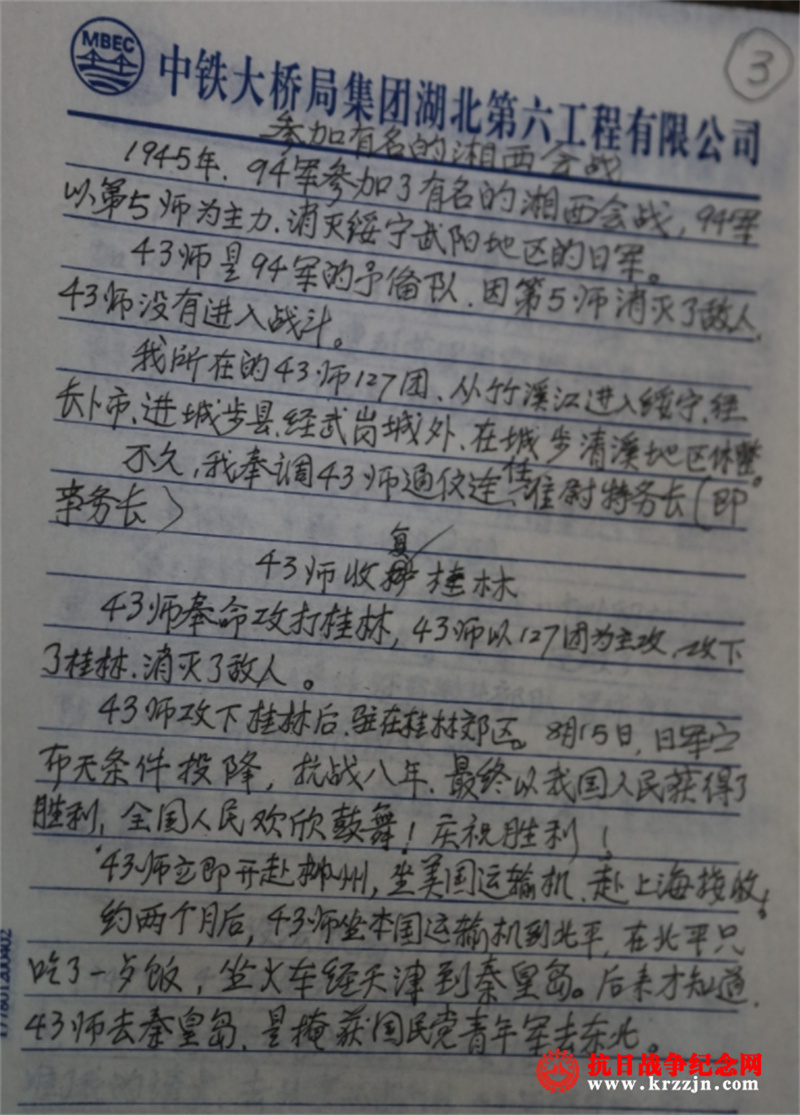 ③
MBEC
中铁大桥局集团湖北第六工程有限公司
参加有名的湘西会战
1945年，94军参加了有名的湘西会战，94军
以第5师为主力，消灭绥宁武阳地区的日军。
43师是94军的予备队，因第5师消灭了敌人，
43师没有进入战斗。
我所在的43师127团、从竹溪江进入绥宁，经
长卜市、进城步县，经武岗城外、在城步清溪地区休整。
不久，我奉调43师通仪连任准尉特务长(即
事务长)
43师收复桂林
43师奉命攻打桂林，43师以127团为主攻，攻下
了桂林，消灭了敌人。
43师攻下桂林后，驻在桂林郊区。8月15日，日军宣
布无条件投降，抗战八年，最终以我国人民获得了
胜利，全国人民欢欣鼓舞！庆祝胜利！
43师立即开赴柳州，坐美国运输机，赴上海接收！
约两个月后，43师坐本国运输机到北平，在北平只
吃了一歺饭，坐火车经天津到秦皇岛。后来才知道，
43师去秦皇岛，是掩获国民党青年军去东北。
177801200402
抗日战争纪念网
www.krzzjn.com